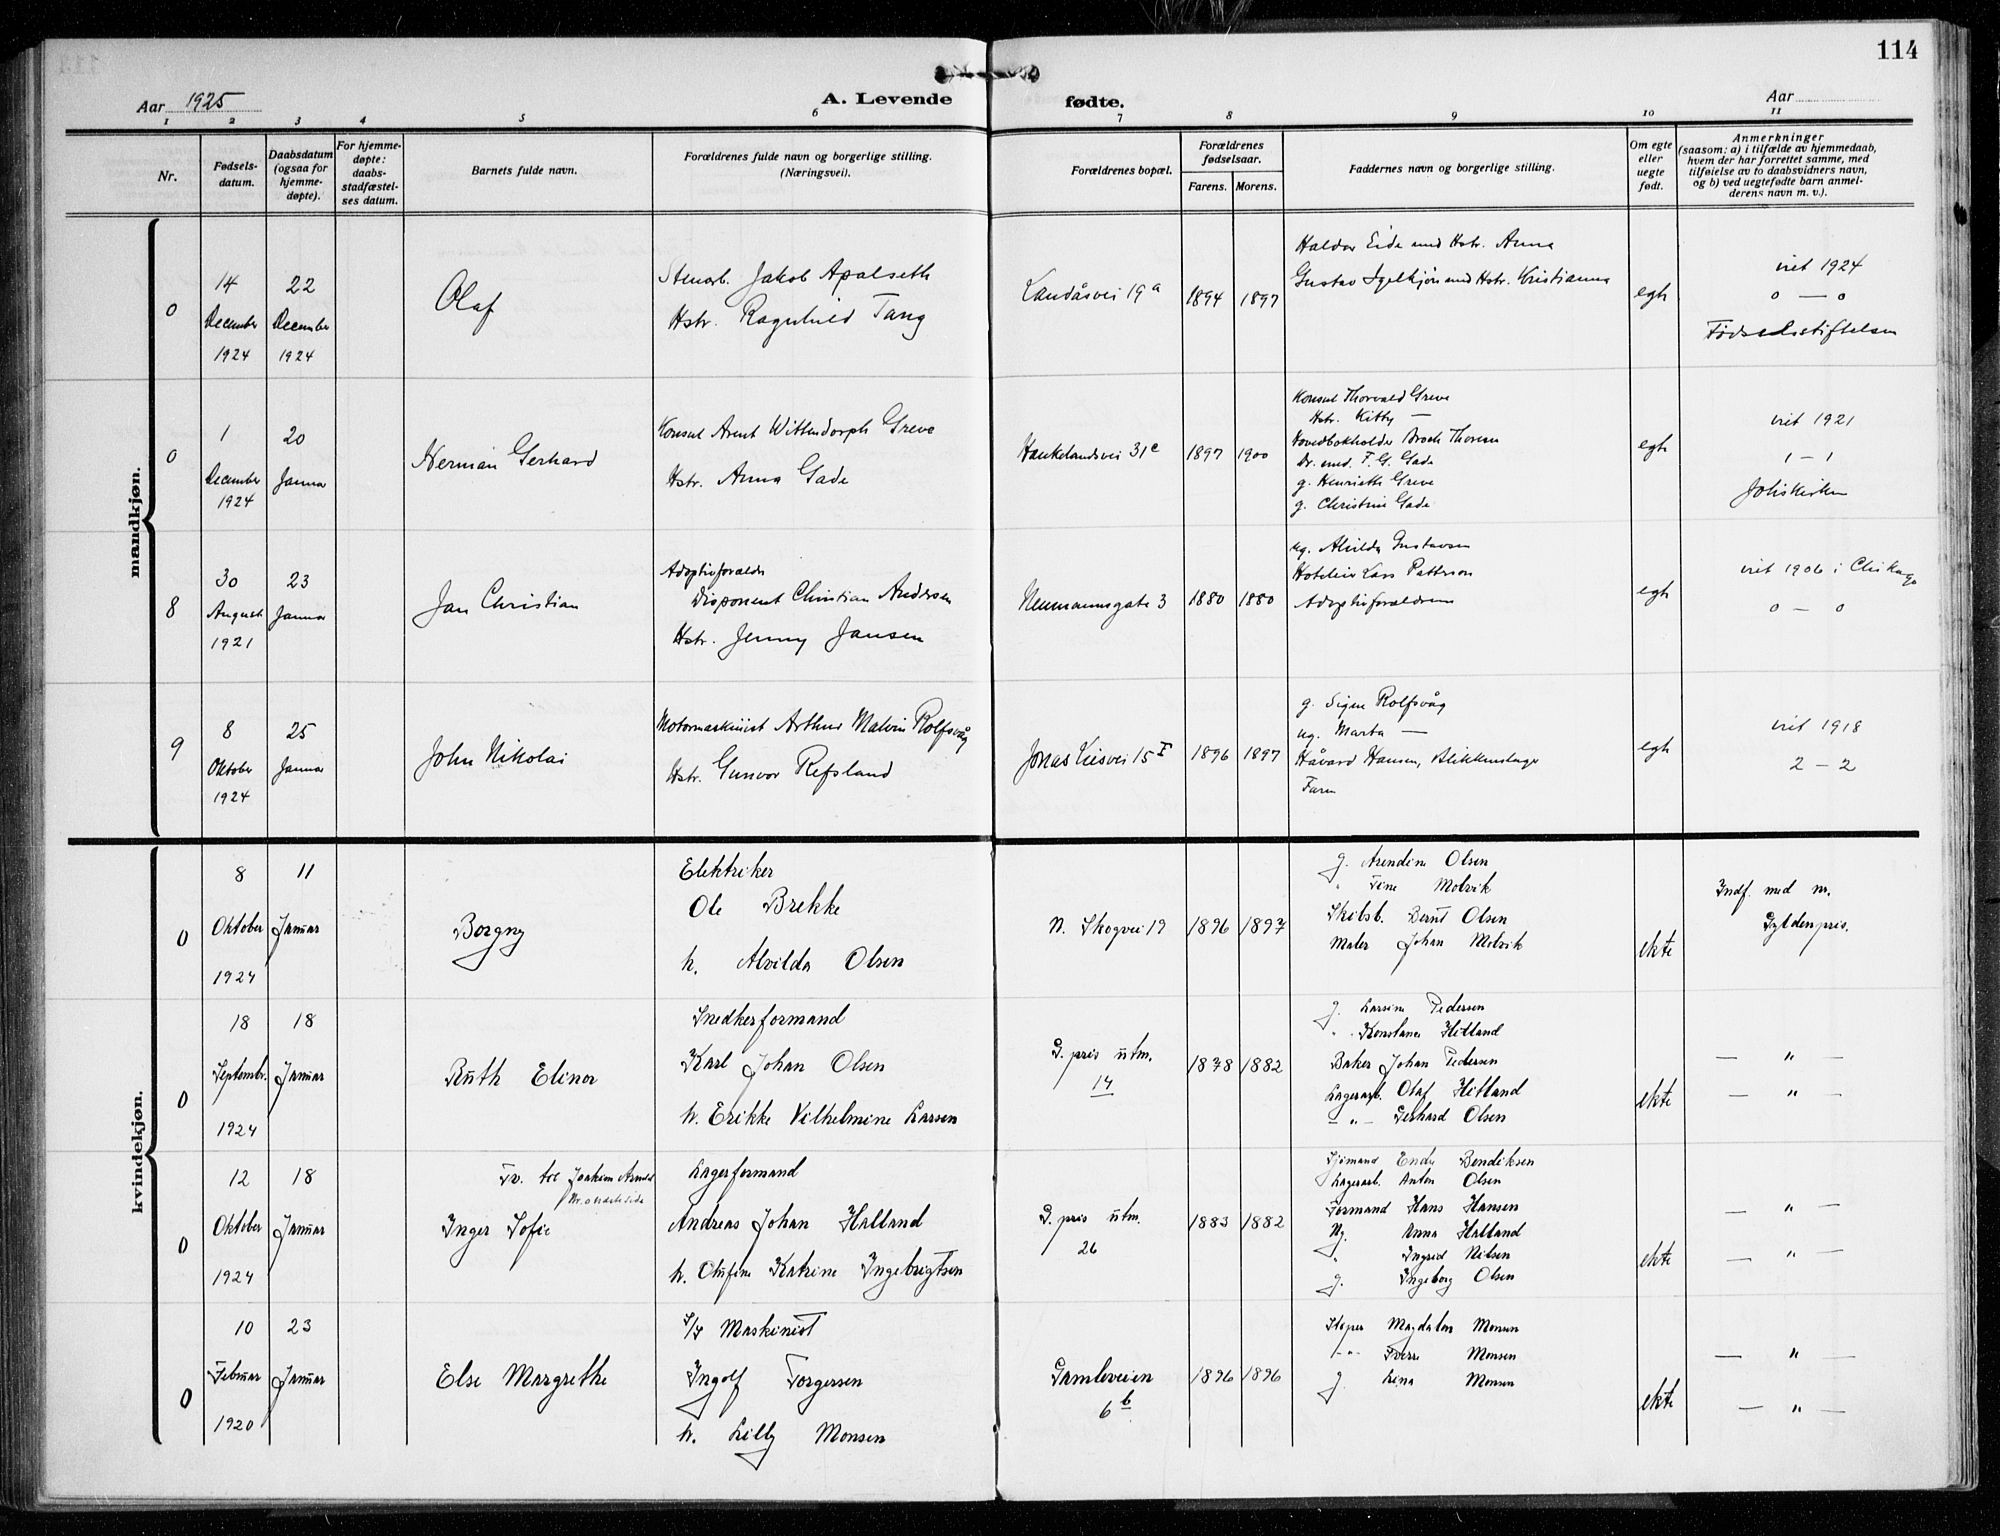 114
Aar 1925
A. Levende fødte.
Aar
1 2 3 4 5 6 7 8 9 10 11
Nr.
Fødsels-
datum.
Daabsdatum
(ogsaa for
hjemme-
døpte).
For hjemme-
døpte:
daabs-
stadfæstel-
ses datum.
Barnets fulde navn.
Forældrenes fulde navn og borgerlige stilling.
(Næringsvei).
Forældrenes bopæl.
Forældrenes
fødselsaar.
Farens. Morens.
Faddernes navn og borgerlige stilling.
Om egte
eller
uegte
født.
Anmerkninger
(saasom: a) i tilfælde av hjemmedaab,
hvem der har forrettet samme, med
tilføielse av to daabsvidners navn,
og b) ved uegtefødte barn anmel-
derens navn m. v.).
mandkjøn.
0
14
December
1924
22
December
1924
Olaf
Stenarb. Jakob Apalseth
Hstr. Ragnhild Tang
Landåsvei 19a
1894 1897
Haldor Eide med Hstr. Anna
Gustav Igelkjøn med Hstr. Kristianna
egte
viet 1924
0 — 0
Fødselsstiftelsen
0
1
December
1924
20
Januar
Herman Gerhard
Konsul Arent Wittendorph Greve
Hstr. Anna Gade
Haukelandsvei 31c
1897 1900
Konsul Thorvald Greve
Hstr. Kitty —
Hovedbokholder Broch Thorsen
Dr. med. F. G. Gade
g. Henriette Greve
g. Christine Gade
egte
viet 1921
1 — 1
Johskirken
8
30
August
1921
23
Januar
Jan Christian
Adoptivforældre
Disponent Christian Andersen
Hstr. Jenny Jansen
Neumannsgate 3
1880 1880
ug. Alvilda Gustavsen
Hoteleier Lars Patterson
Adoptivforældrene
egte
viet 1906 i Chikago
0 — 0
9
8
Oktober
1924
25
Januar
John Nikolai
Motormaskinist Arthur Malvin Rolfsvåg
Hstr. Gunvor Refsland
Jonas Liesvei 15I
1896 1897
g. Signe Rolfsvåg
ug. Marta —
Håvard Hansen, Blikkenslager
Faren
egte
viet 1918
2 — 2
kvindekjøn.
0
8
Oktober
1924
11
Januar
Borgny
Elektriker
Ole Brekke
h. Alvilda Olsen
N. Skogvei 19
1896 1897
g. Arendine Olsen
" Tine Molvik
Skibsb. Bernt Olsen
Maler Johan Molvik
ekte
Indf. med nr.
Gyldenpris.
0
18
Septembr.
1924
18
Januar
Ruth Elinor
Snedkerformand
Karl Johan Olsen
h. Erikke Vilhelmine Larsen
G. pris utm.
14
1878 1882
g. Larsine Pedersen
" Konstanse Hitland
Baker Johan Pedersen
Lagerarb. Olaf Hitland
— " — Gerhard Olsen
ekte
— " —
— " —
0
12
Oktober
1924
18
Januar
Tv. til Joakim Arnold
Nr. 0 næste side
Inger Sofie
Lagerformand
Andreas Johan Halland
h. Olufine Katrine Ingebrigtsen
G. pris utm.
26
1883 1882
Sjømand Endre Bendiksen
Lagerarb. Anton Olsen
Formand Hans Hansen
Ug. Anna Halland
" Ingrid Nilsen
g. Ingeborg Olsen
ekte
— " —
— " —
0
10
Februar
1920
23
Januar
Else Margrethe
S/S Maskinist
Ingolf Torgersen
h. Lilly Monsen
Gamleveien
6b
1896 1896
Magdalon Monsen
— " — Sverre Monsen
g. Lina Monsen
ekte
— " —
— " —